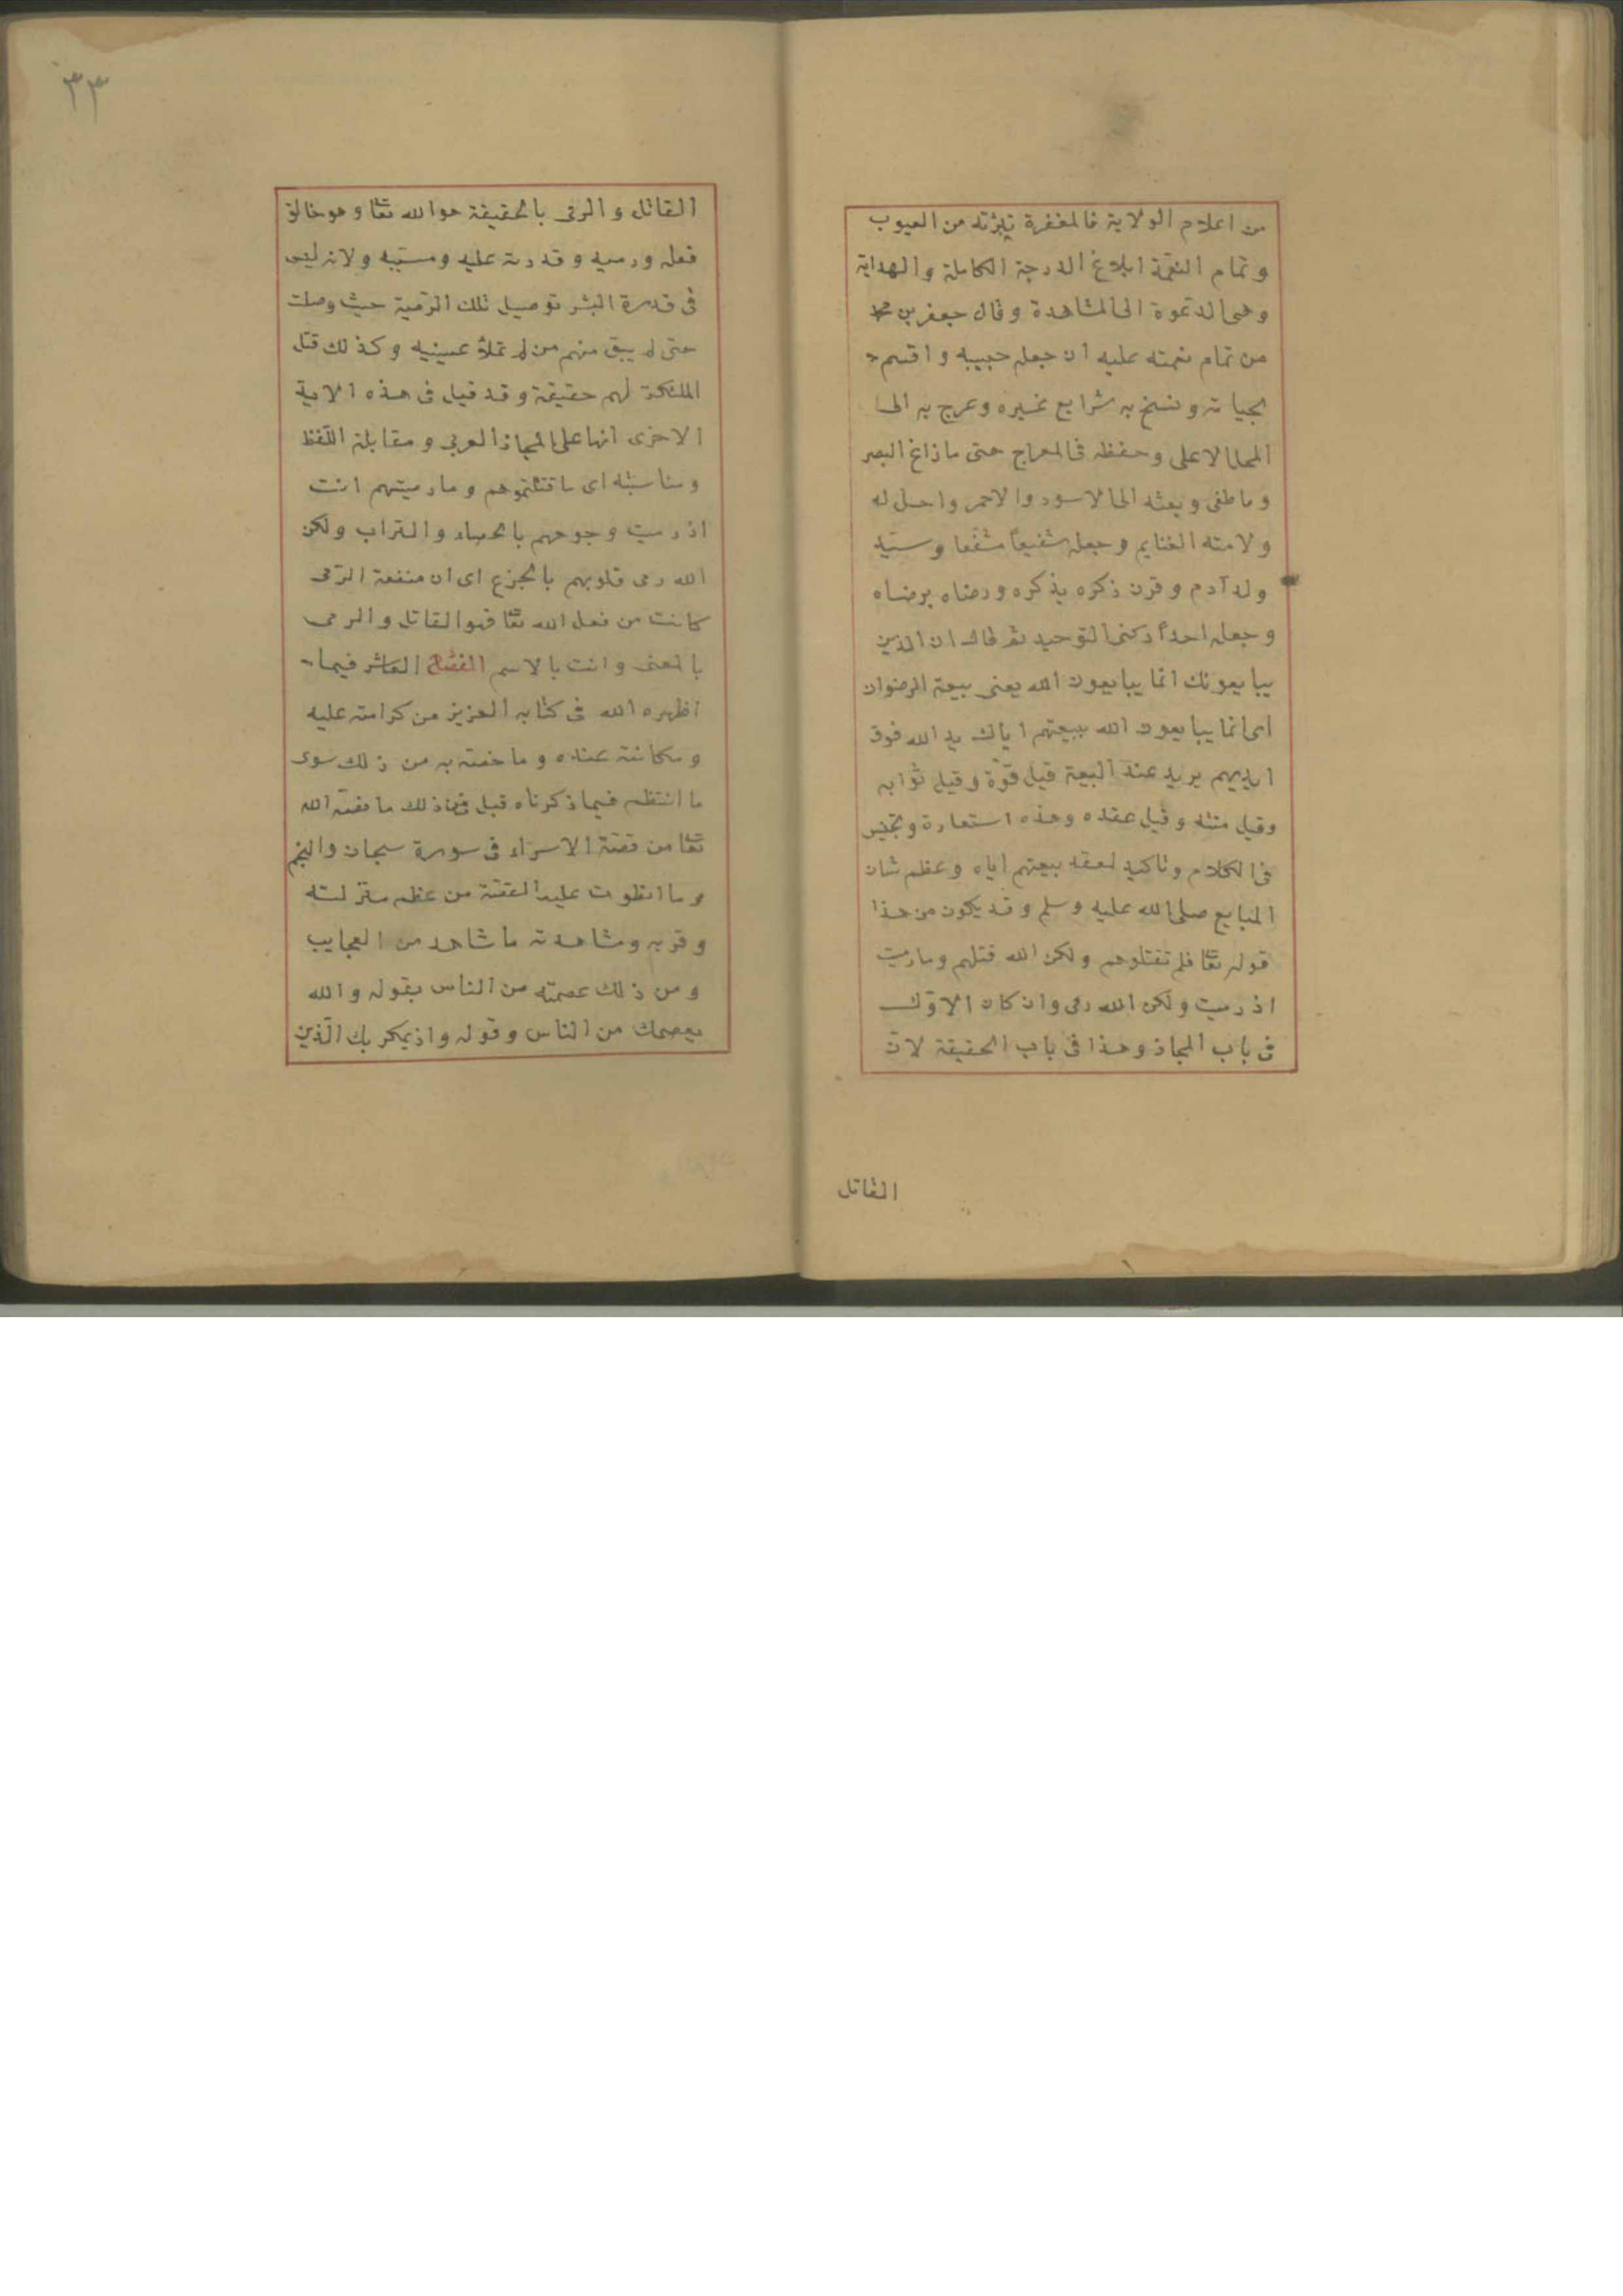 من اعلام الولاية فالمغفرة تبرئته من العيوب
وتمام النعمة ابلاغ الدرجة الكاملة والهداية
وهى الدعوة الى المشاهدة وقال جعفر بن محمد
من تمام نعمته عليه ان جعله حبيبه واقسم
بحياته ونسخ به شرايع غيره وعرج به الى
المحل الاعلى وحفظه فى المعراج حتى مازاغ البصر
وما طغى وبعثه الى الاسود والاحمر واحل له
ولامته الغنايم وجعله شفيعاً مشفعا وسيّد
ولد آدم وقرن ذكره بذكره ورضاه برضاه
وجعله احداً ركنى التوحيد ثم قال ان الذين
يبايعونك انما يبايعون الله يعنى بيعة الرضوان
اى انما يبايعون الله ببيعتهم اياك يد الله فوق
ايديهم يريد عند البيعة قيل قوّة وقيل ثوابه
وقيل منته وقيل عقده وهذه استعارة وتجنيس
فى الكلام وتاكيد لعقد بيعتهم اياه وعظم شان
المبايع صلى الله عليه وسلم وقد يكون من هذا
قوله تعا فلم تقتلوهم ولكن الله قتلهم وما رميت
اذ رميت ولكن الله رمى وان كان الاوّل
فى باب المجاز وهذا فى باب الحقيقة لان
القاتل
٣٣
القاتل والرمى بالحقيقة هو الله تعا وهو خالق
فعله ورميه وقدرته عليه ومسببه ولانه ليس
فى قدرة البشر توصيل تلك الرّمية حيث وصلت
حتى لم يبق منهم من لم تملأ عينيه وكذلك قتل
الملئكة لهم حقيقة وقد قيل فى هذه الاية
الاخرى انها على المجاز العربى ومقابلة اللّفظ
ومناسبته اى ما قتلتموهم وما رميتهم انت
اذ رميت وجوههم بالحصباء والتراب ولكن
الله رمى قلوبهم بالجزع اى ان منفعة الرّمى
كانت من فعل الله تعا فهو القاتل والرمى
بالمعنى وانت بالاسم الفصل العاشر فيما
اظهره الله فى كتابه العزيز من كرامته عليه
ومكانته عنده وما خصته به من ذلك سوى
ما انتظم فيما ذكرناه قبل فمن ذلك ما نصّه الله
تعا من قصّة الاسراء فى سورة سبحان والنجم
وما انطوت عليه القصّة من عظم منزلته
وقربه ومشاهدته ما شاهد من العجايب
ومن ذلك عصمته من الناس بقوله والله
يعصمك من الناس وقوله واذ يمكر بك الّذين